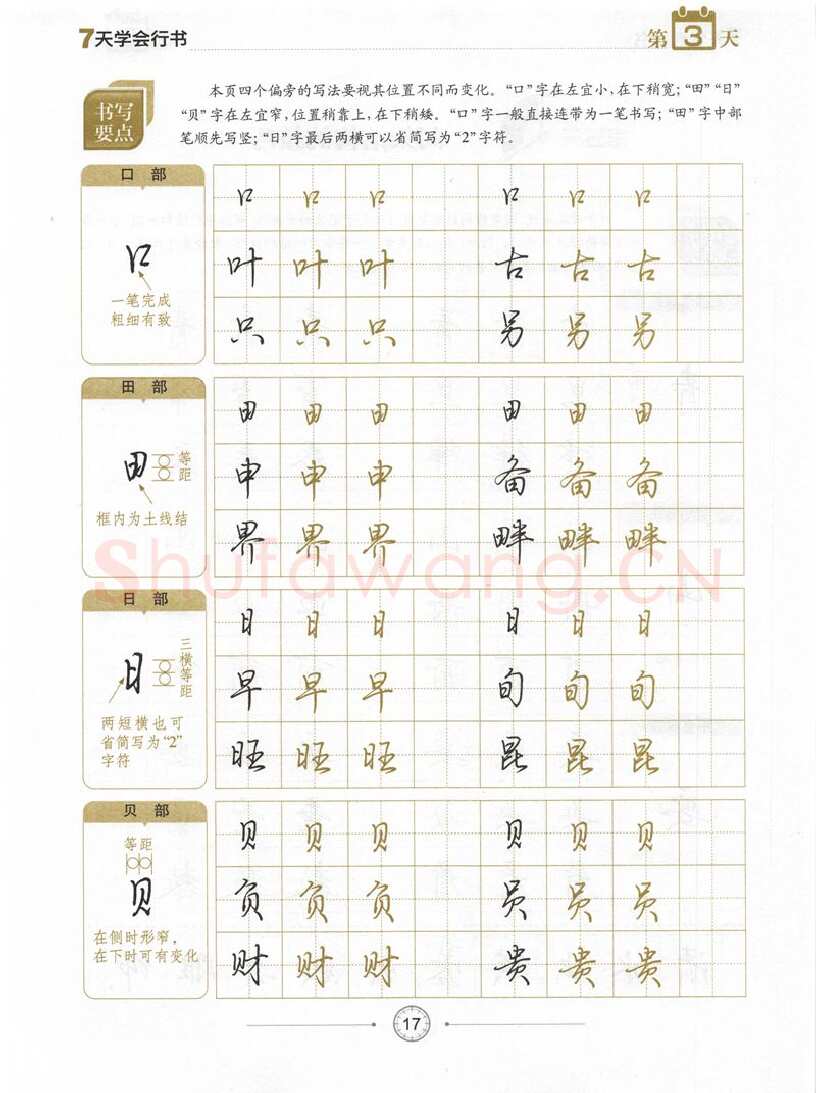 7天学会行书
第3天
书写
要点
本页四个偏旁的写法要视其位置不同而变化。“口”字在左宜小、在下稍宽；“田”“日”
“贝”字在左宜窄，位置稍靠上，在下稍矮。“口”字一般直接连带为一笔书写；“田”字中部
笔顺先写竖；“日”字最后两横可以省简写为“2”字符。
口部
口
一笔完成
粗细有致
口 口 口 口 口 口
叶 叶 叶 古 古 古
只 只 只 另 另 另
田部
田
等距
框内为土线结
田 田 田 田 田 田
申 申 申 备 备 备
界 界 界 畔 畔 畔
日部
日
三横等距
两短横也可
省简写为“2”
字符
日 日 日 日 日 日
早 早 早 旬 旬 旬
旺 旺 旺 昆 昆 昆
贝部
等距
贝
在侧时形窄，
在下时可有变化
贝 贝 贝 贝 贝 贝
负 负 负 员 员 员
财 财 财 贵 贵 贵
Shufawang.CN
17